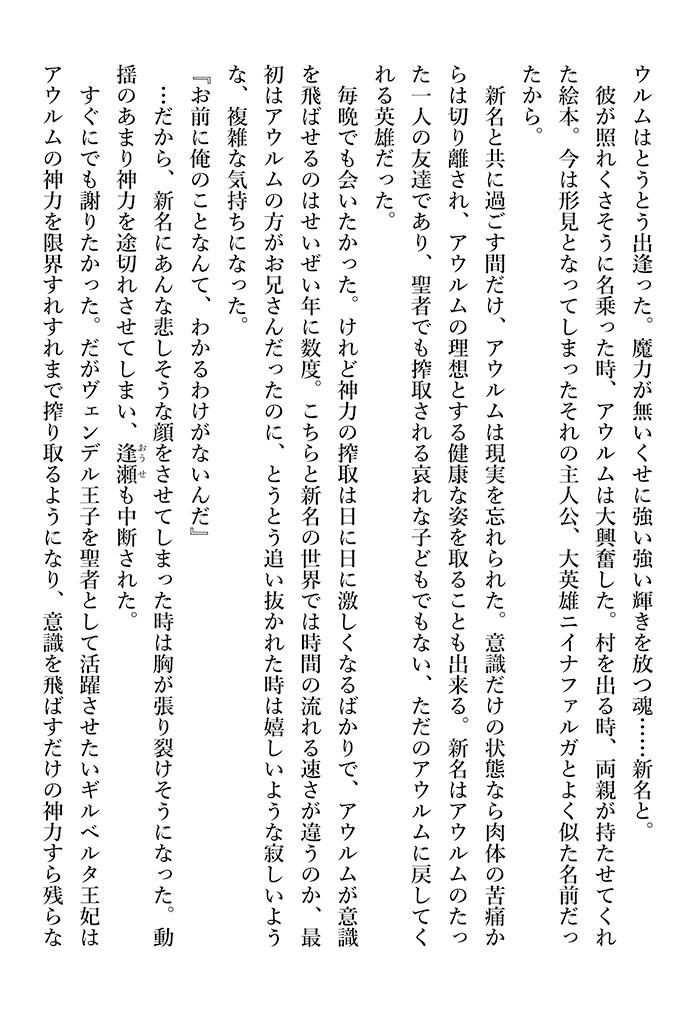 ウルムはとうとう出逢った。魔力が無いくせに強い強い輝きを放つ魂……新名と。
　彼が照れくさそうに名乗った時、アウルムは大興奮した。村を出る時、両親が持たせてくれ
た絵本。今は形見となってしまったそれの主人公、大英雄ニイナファルガとよく似た名前だっ
たから。
　新名と共に過ごす間だけ、アウルムは現実を忘れられた。意識だけの状態なら肉体の苦痛か
らは切り離され、アウルムの理想とする健康な姿を取ることも出来る。新名はアウルムのたっ
た一人の友達であり、聖者でも搾取される哀れな子どもでもない、ただのアウルムに戻してく
れる英雄だった。
　毎晩でも会いたかった。けれど神力の搾取は日に日に激しくなるばかりで、アウルムが意識
を飛ばせるのはせいぜい年に数度。こちらと新名の世界では時間の流れる速さが違うのか、最
初はアウルムの方がお兄さんだったのに、とうとう追い抜かれた時は嬉しいような寂しいよう
な、複雑な気持ちになった。
『お前に俺のことなんて、わかるわけがないんだ』
　…だから、新名にあんな悲しそうな顔をさせてしまった時は胸が張り裂けそうになった。動
揺のあまり神力を途切れさせてしまい、逢瀬おうせも中断された。
　すぐにでも謝りたかった。だがヴェンデル王子を聖者として活躍させたいギルベルタ王妃は
アウルムの神力を限界すれすれまで搾り取るようになり、意識を飛ばすだけの神力すら残らな